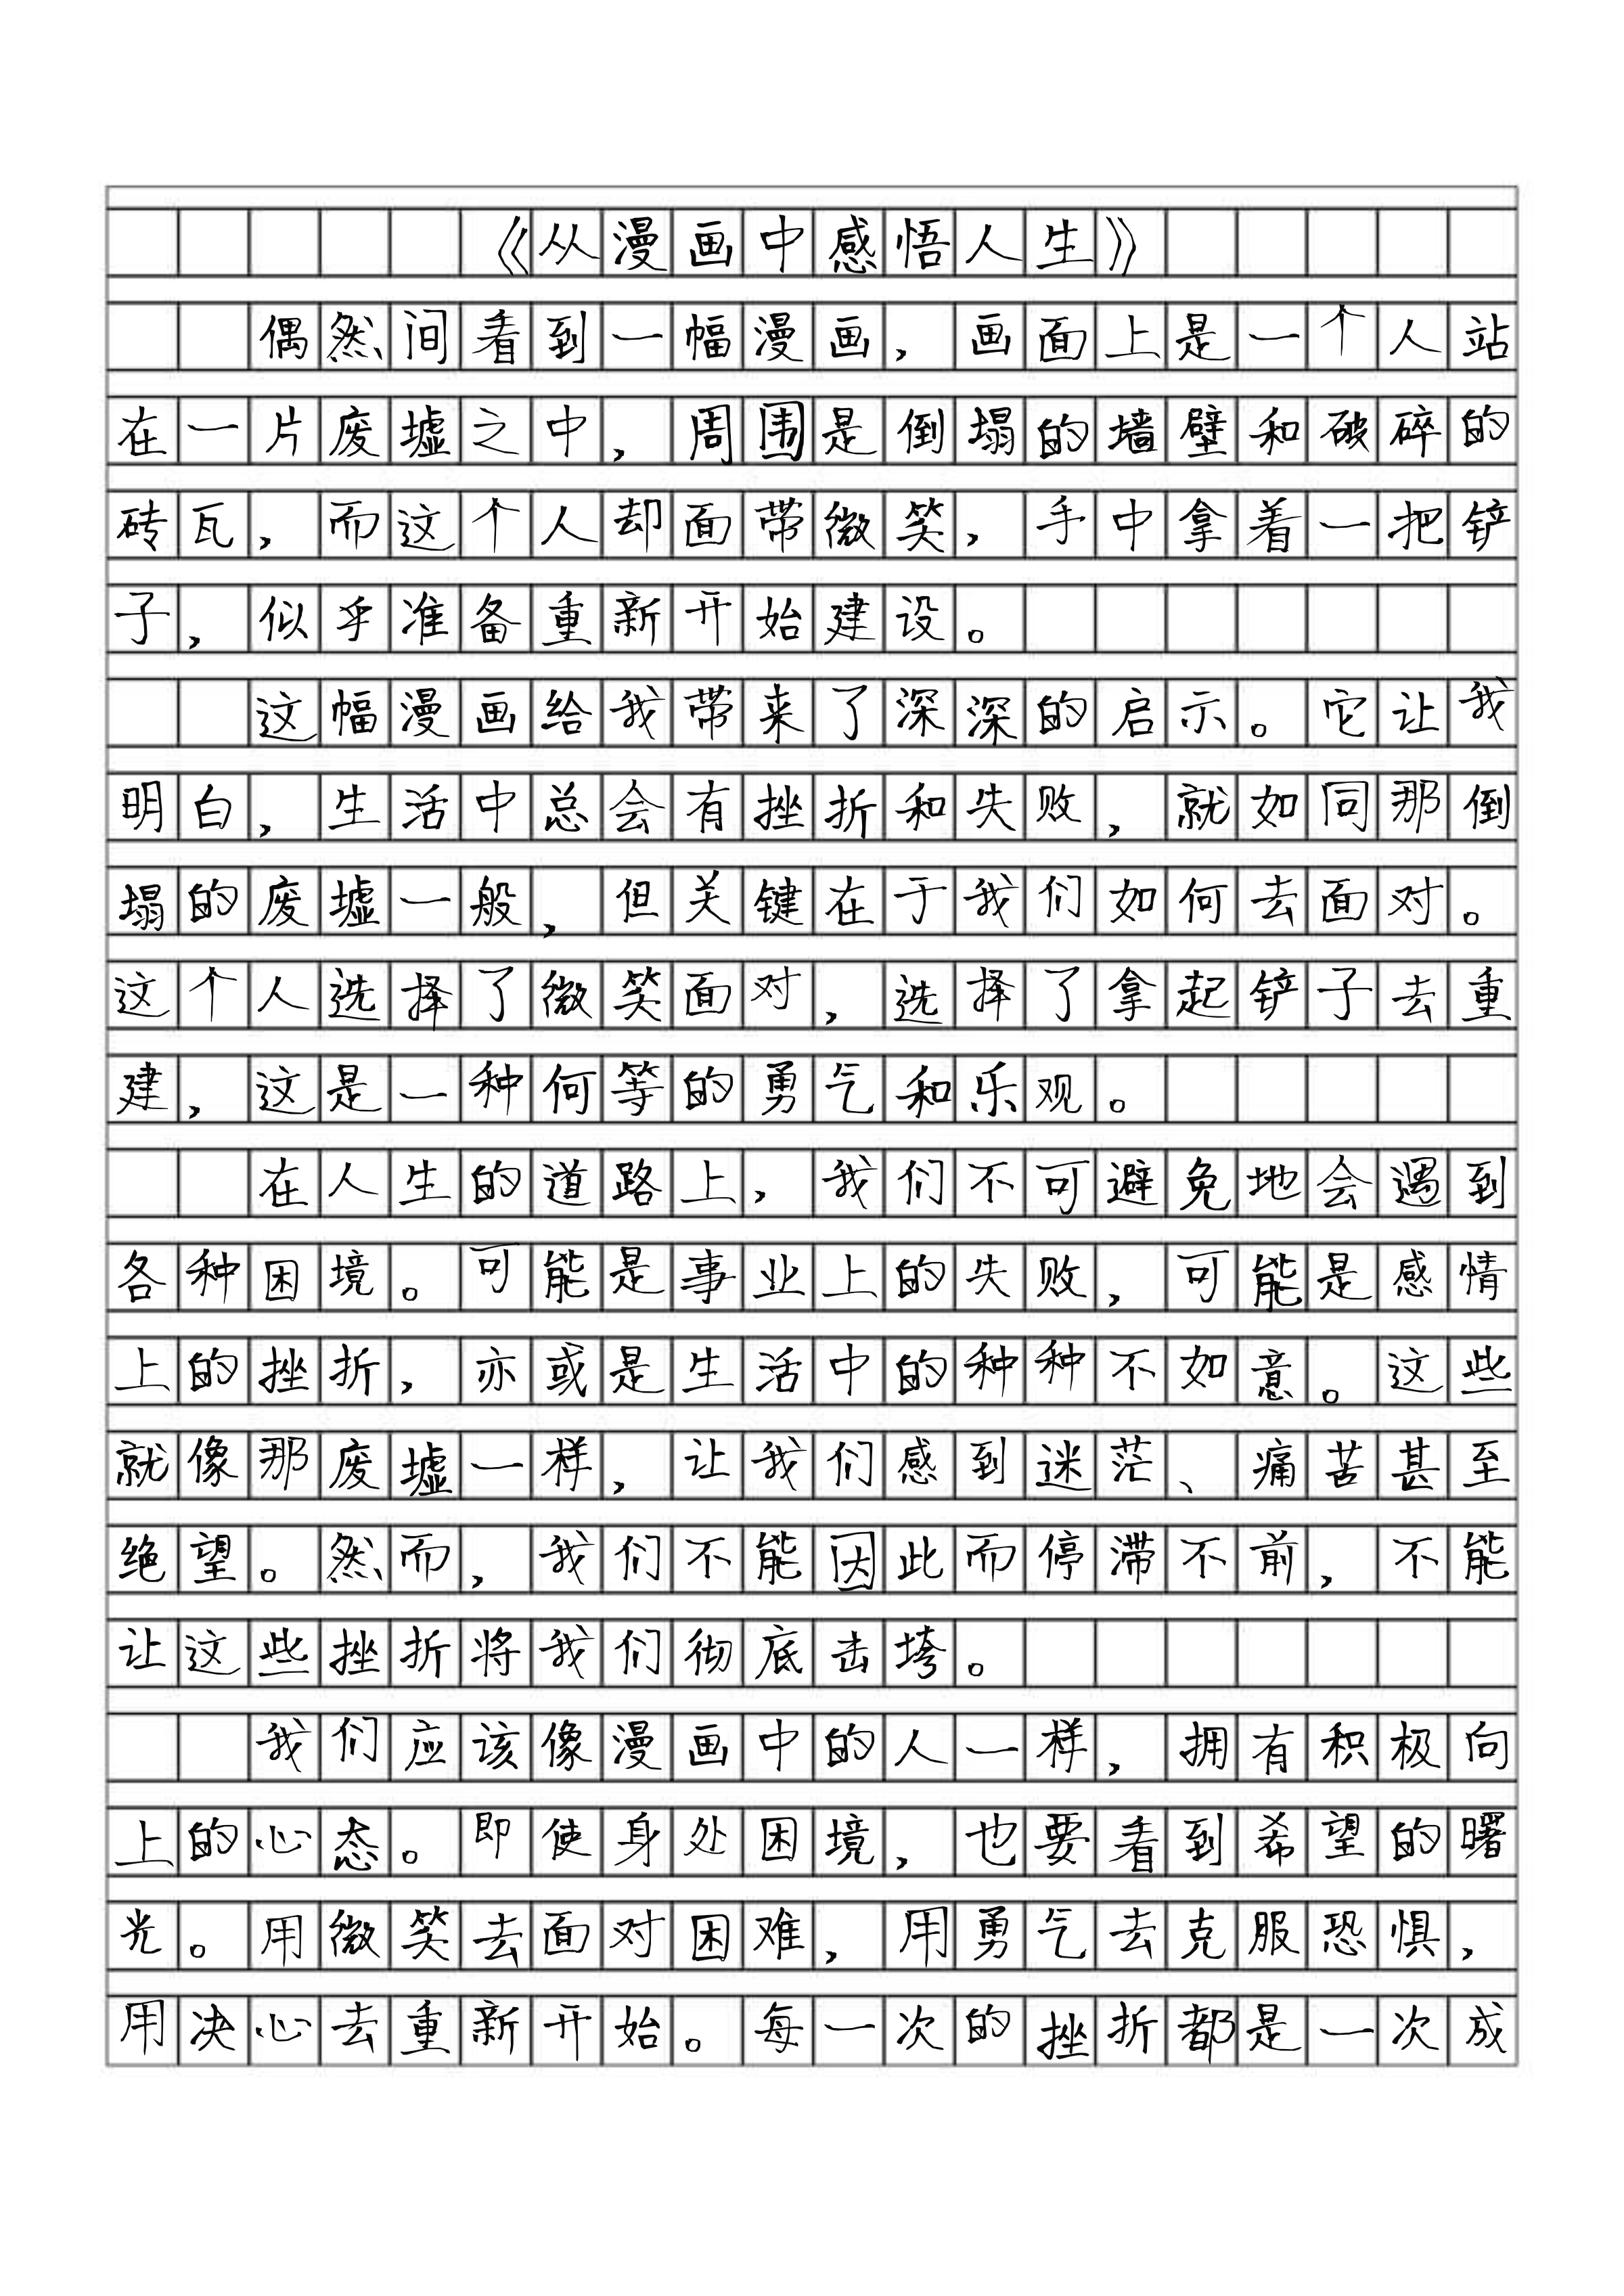 《从漫画中感悟人生》
偶然间看到一幅漫画，画面上是一个人站
在一片废墟之中，周围是倒塌的墙壁和破碎的
砖瓦，而这个人却面带微笑，手中拿着一把铲
子，似乎准备重新开始建设。
这幅漫画给我带来了深深的启示。它让我
明白，生活中总会有挫折和失败，就如同那倒
塌的废墟一般，但关键在于我们如何去面对。
这个人选择了微笑面对，选择了拿起铲子去重
建，这是一种何等的勇气和乐观。
在人生的道路上，我们不可避免地会遇到
各种困境。可能是事业上的失败，可能是感情
上的挫折，亦或是生活中的种种不如意。这些
就像那废墟一样，让我们感到迷茫、痛苦甚至
绝望。然而，我们不能因此而停滞不前，不能
让这些挫折将我们彻底击垮。
我们应该像漫画中的人一样，拥有积极向
上的心态。即使身处困境，也要看到希望的曙
光。用微笑去面对困难，用勇气去克服恐惧，
用决心去重新开始。每一次的挫折都是一次成